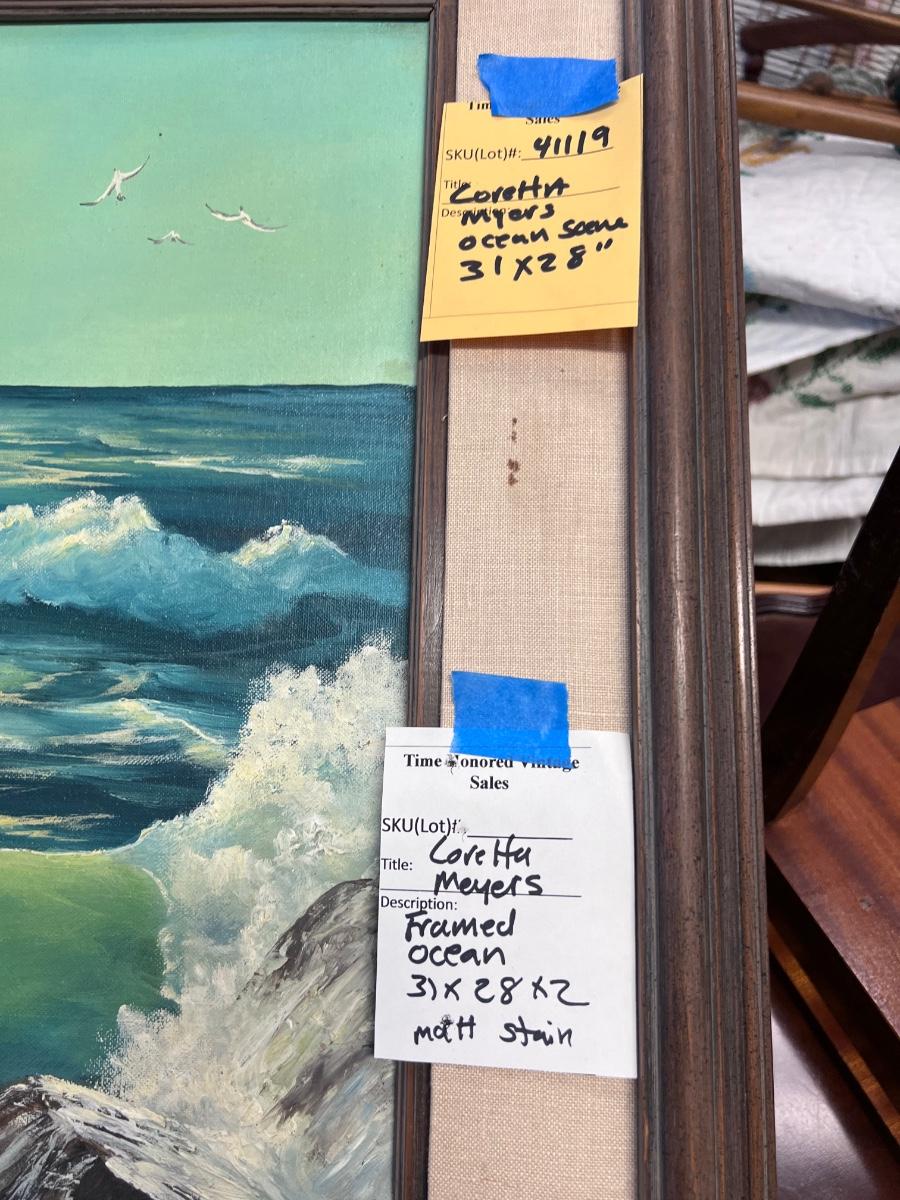 Sales
SKU(Lot)#: 41119
Title:
Loretta
Myers
ocean scene
31x28"
Time Honored Vintage
Sales
SKU(Lot)#:
Title: Loretta
Meyers
Description:
Framed
ocean
31x28x2
matt stain